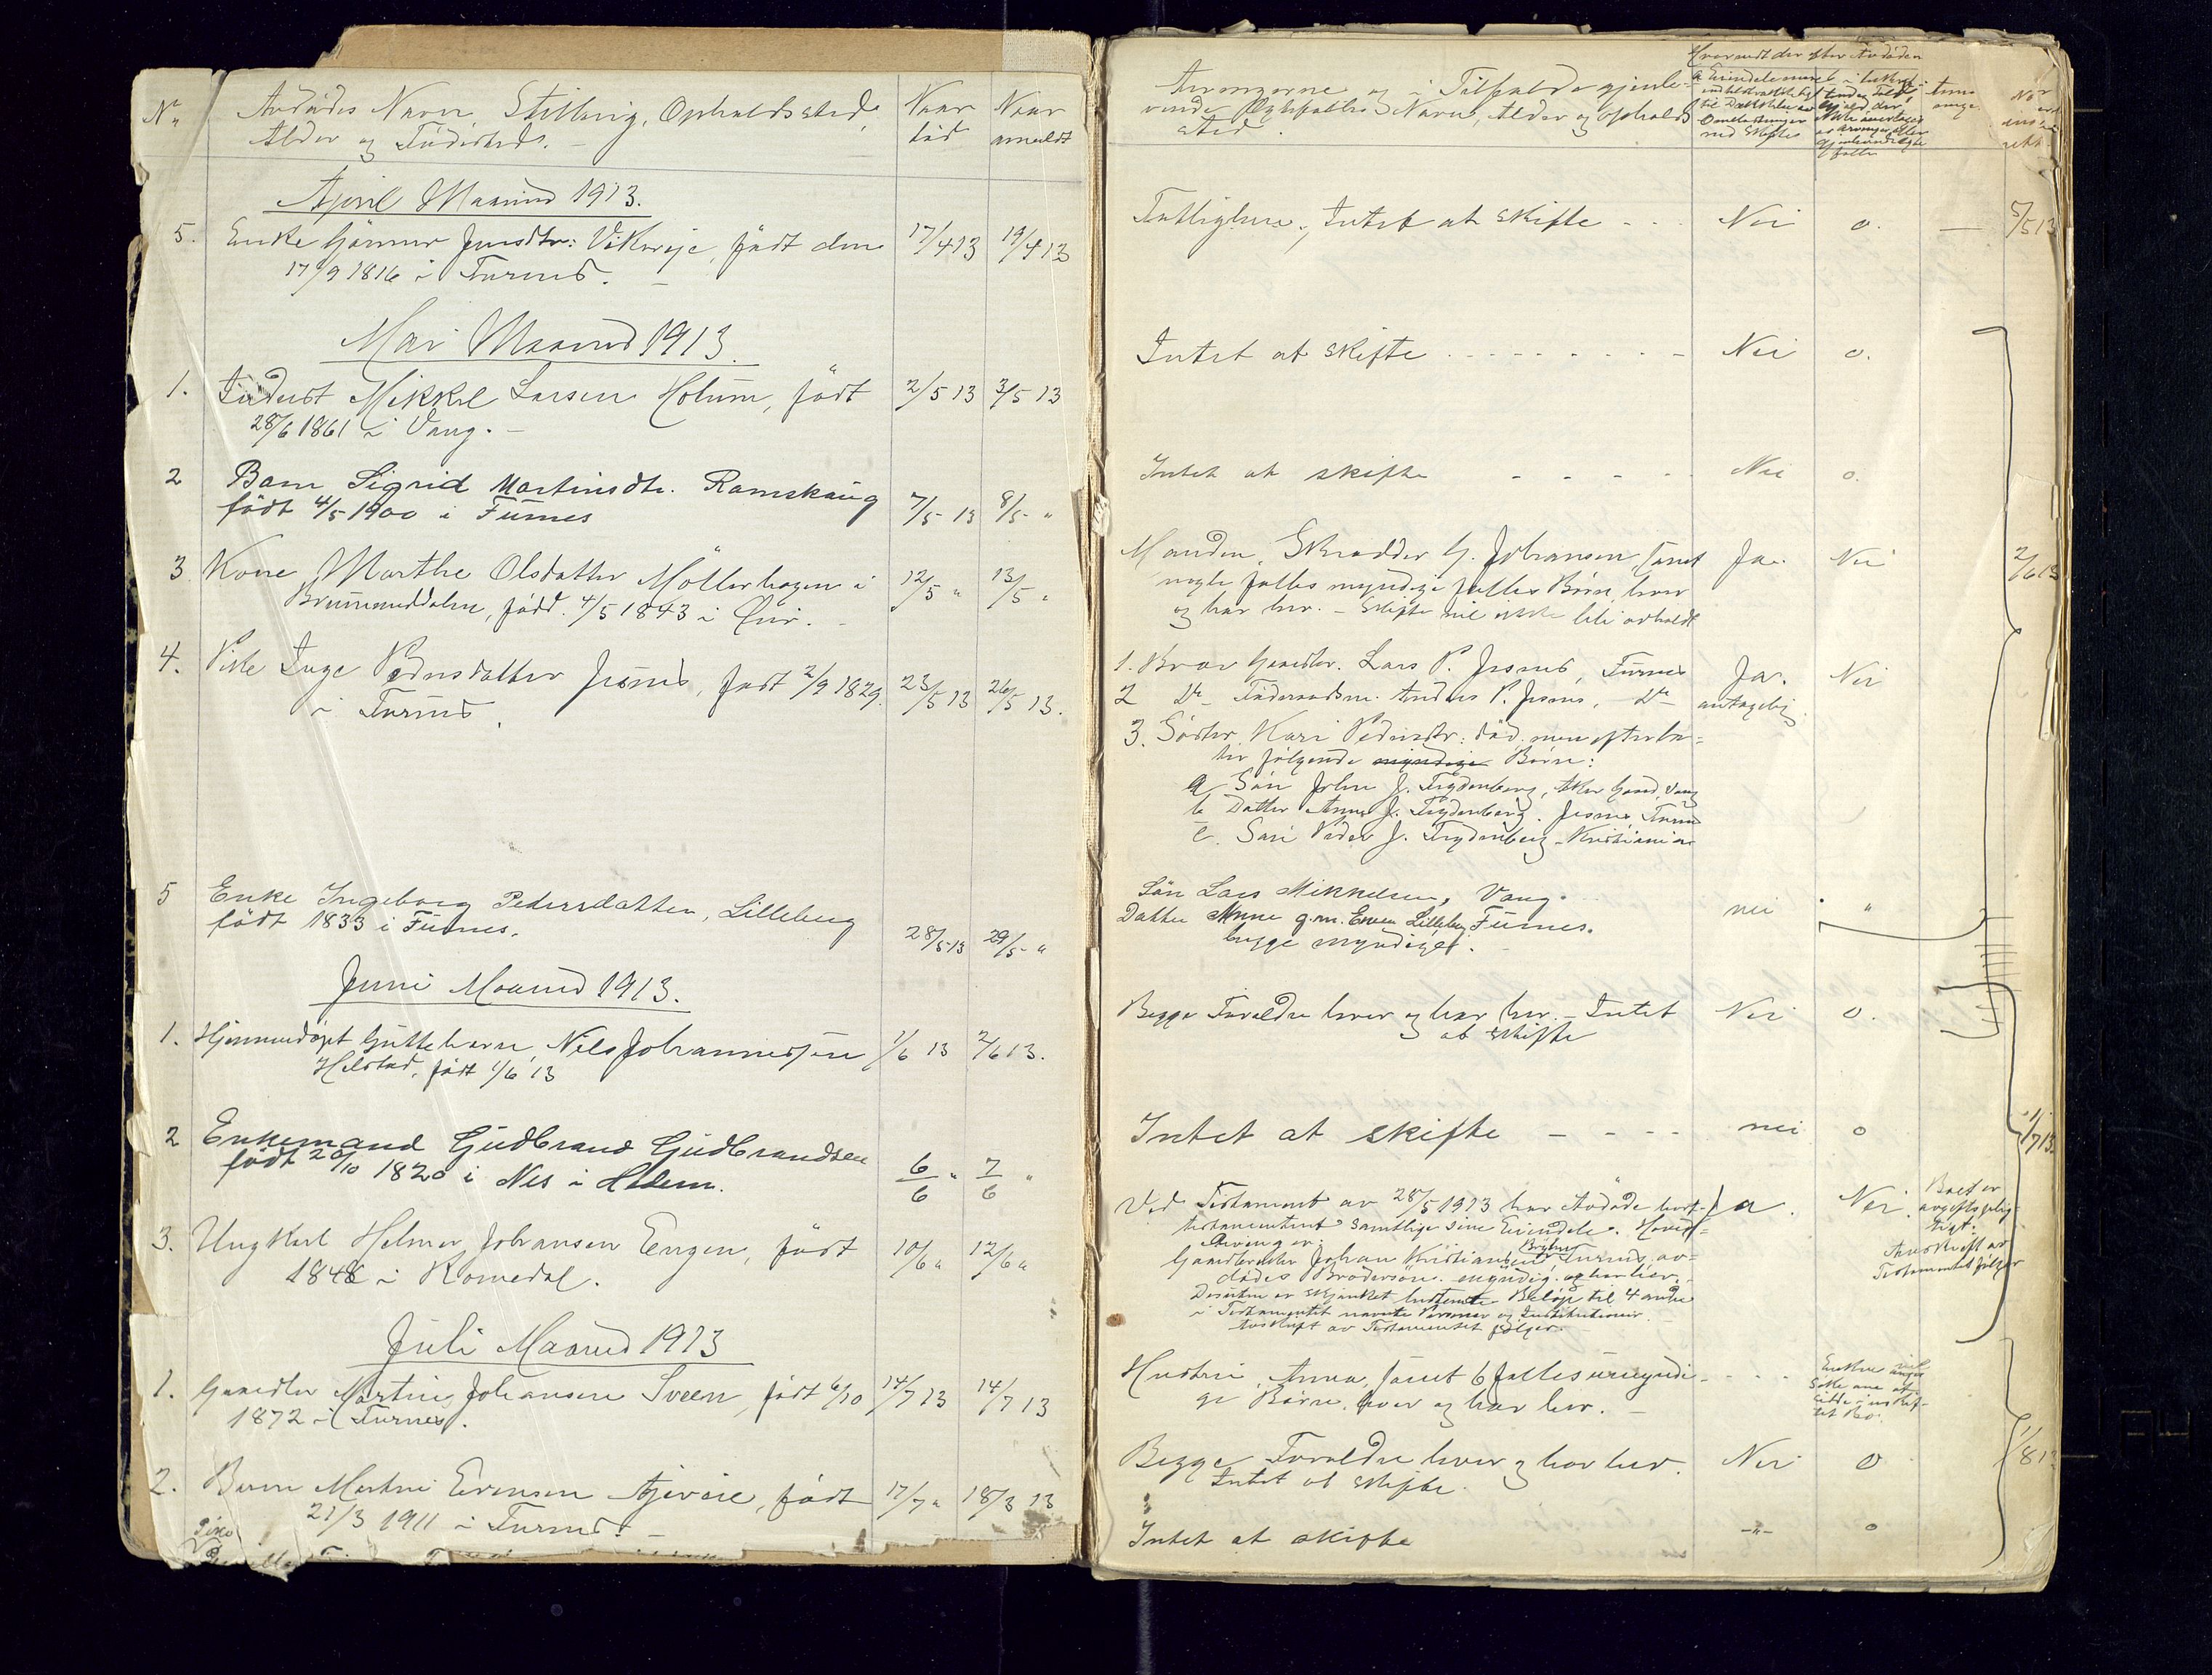 No
Avdødes Navn, Stilling, Opholdssted,
Alder og Fødested. –
Naar
død
Naar
anmeldt
April Maaned 1913.
5. Enke Jensdtr: født den 17/4 13 19/4 13
17/9 1816 i Furnes. –
Mai Maaned 1913.
1. Inderst Mikkel Larsen Holum, født 2/5 13 3/5 13
28/6 1861 i Vang. –
2 Barn Sigrid Martinsdtr. Ramskaug 7/5 13 8/5 "
født 4/5 1900 i Furnes
3 Kone Marthe Olsdatter Möllerhagen i 12/5 " 13/5 "
Brumunddalen, född. 4/5 1843 i
4. Pike Inge Pedersdatter Jesnes, født 2/9 1829. 23/5 13 26/5 13.
i Furnes.
5 Enke Ingeborg Pedersdatter, Lilleberg
født 1833 i Furnes. 28/5 13 29/5 "
Juni Maaned 1913.
1. Hjemmedøpt Guttebarn, Nils Johannessen 1/6 13 2/6 13.
Helstad, født 1/6 13
2 Enkemand Gudbrand Gudbrandsen
født 20/10 1820 i Nes i Hdem. 6/6 " 7/6 "
3. Ungkarl Helmer Johansen Engen, født 10/6 " 12/6 "
1848 i Romedal.
Juli Maaned 1913
1. Gaardbr Martin Johansen Sveen, født 6/10 14/7 13 14/7 13
1872 i Furnes.
2. Barn Martin Evensen født 17/7 " 18/3 13
21/3 1911 i Furnes. –
Pike
Arvingerne og i Tilfælde gjenle-
vende Ægtefælles Navn, Alder og Opholds-
sted.
Hvorvidt der efter Avdøden
Fattiglem, Intet at skifte – . . Nei o. — 5/5 13
Intet at skifte . . . . . . . . – Nei o.
Intet at skifte - - - - - Nei o.
Manden, Skrædder G. Johansen, samt Ja. Nei 2/6 13
nogle fælles myndige fælles Børn, hvor
og har her. – Skifte vil ikke bli avholdt
1. Bror Gaardbr. Lars P. Jesnes, Furnes Ja. Nei
2 Do Föderaadsm. Anders P. Jesnes. Do antagelig.
3. Søster Kari Pedersdtr: død. men efterla-
ter følgende myndige Børn:
a Søn John J. Frydenberg, Aker Gaard, Vang
b Datter Anne J. Frydenberg. Jesnes Furnes
c. Søn Peder J. Frydenberg – Kristiania
Sön Lars Mikkelsen, Vang. nei "
Datter Anne g.m. Even Lilleberg Furnes.
begge myndiget.
Begge Forældre lever og har her. – Intet Nei o.
at skifte
Intet at skifte – - - - - nei o 1/7 13
Ved Testament av 28/5 1913 har Avdøde bort- Ja. Nei.
testamenteret samtlige sine Eiendele. Hoved-
Arving er:
Gaardbruker Johan Kristiansen Furnes, av-
dødes Brodersøn. myndig. og har her. –
Desuten er skjænket bestemte Beløp til 4 andre
i Testamentet nævnte Personer og Institutioner.
Avskrift av Testamentet følger. –
Boet er
avgiftsplig-
tigt.
Avskrift av
Testamentet følger
Hustru, Anna, samt 6 fælles umyndi- - . . .
ge Børn, hvor og har her. –
Enken vil
søke om at
sidde i uskif-
tet Bo.
Begge Forældre lever og har her. Nei O 1/8 13
Intet at skifte.
Intet at skifte –"– o